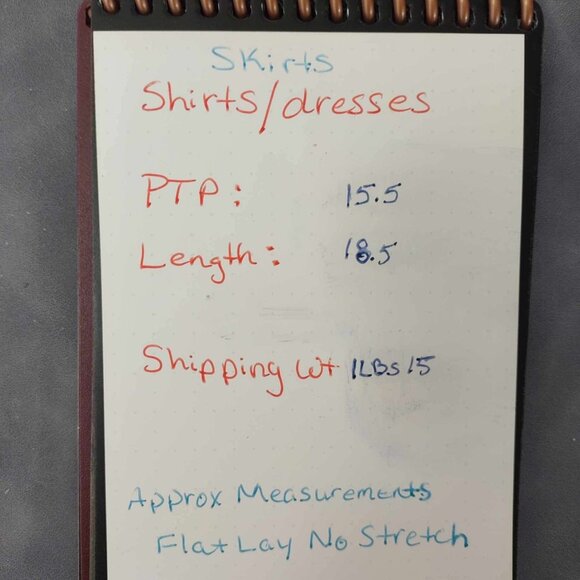 Skirts
Shirts/dresses
PTP: 15.5
Length: 18.5
Shipping Wt 1LBs 15
Approx Measurements
Flat Lay No Stretch